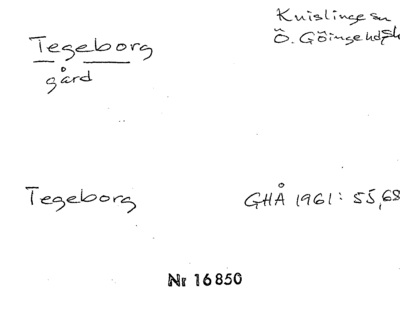 Knislinge sn
Tegeborg
Ö. Göinge hd, Sk
gård
Tegeborg
GHÅ 1961: 55, 68
Nr 16850